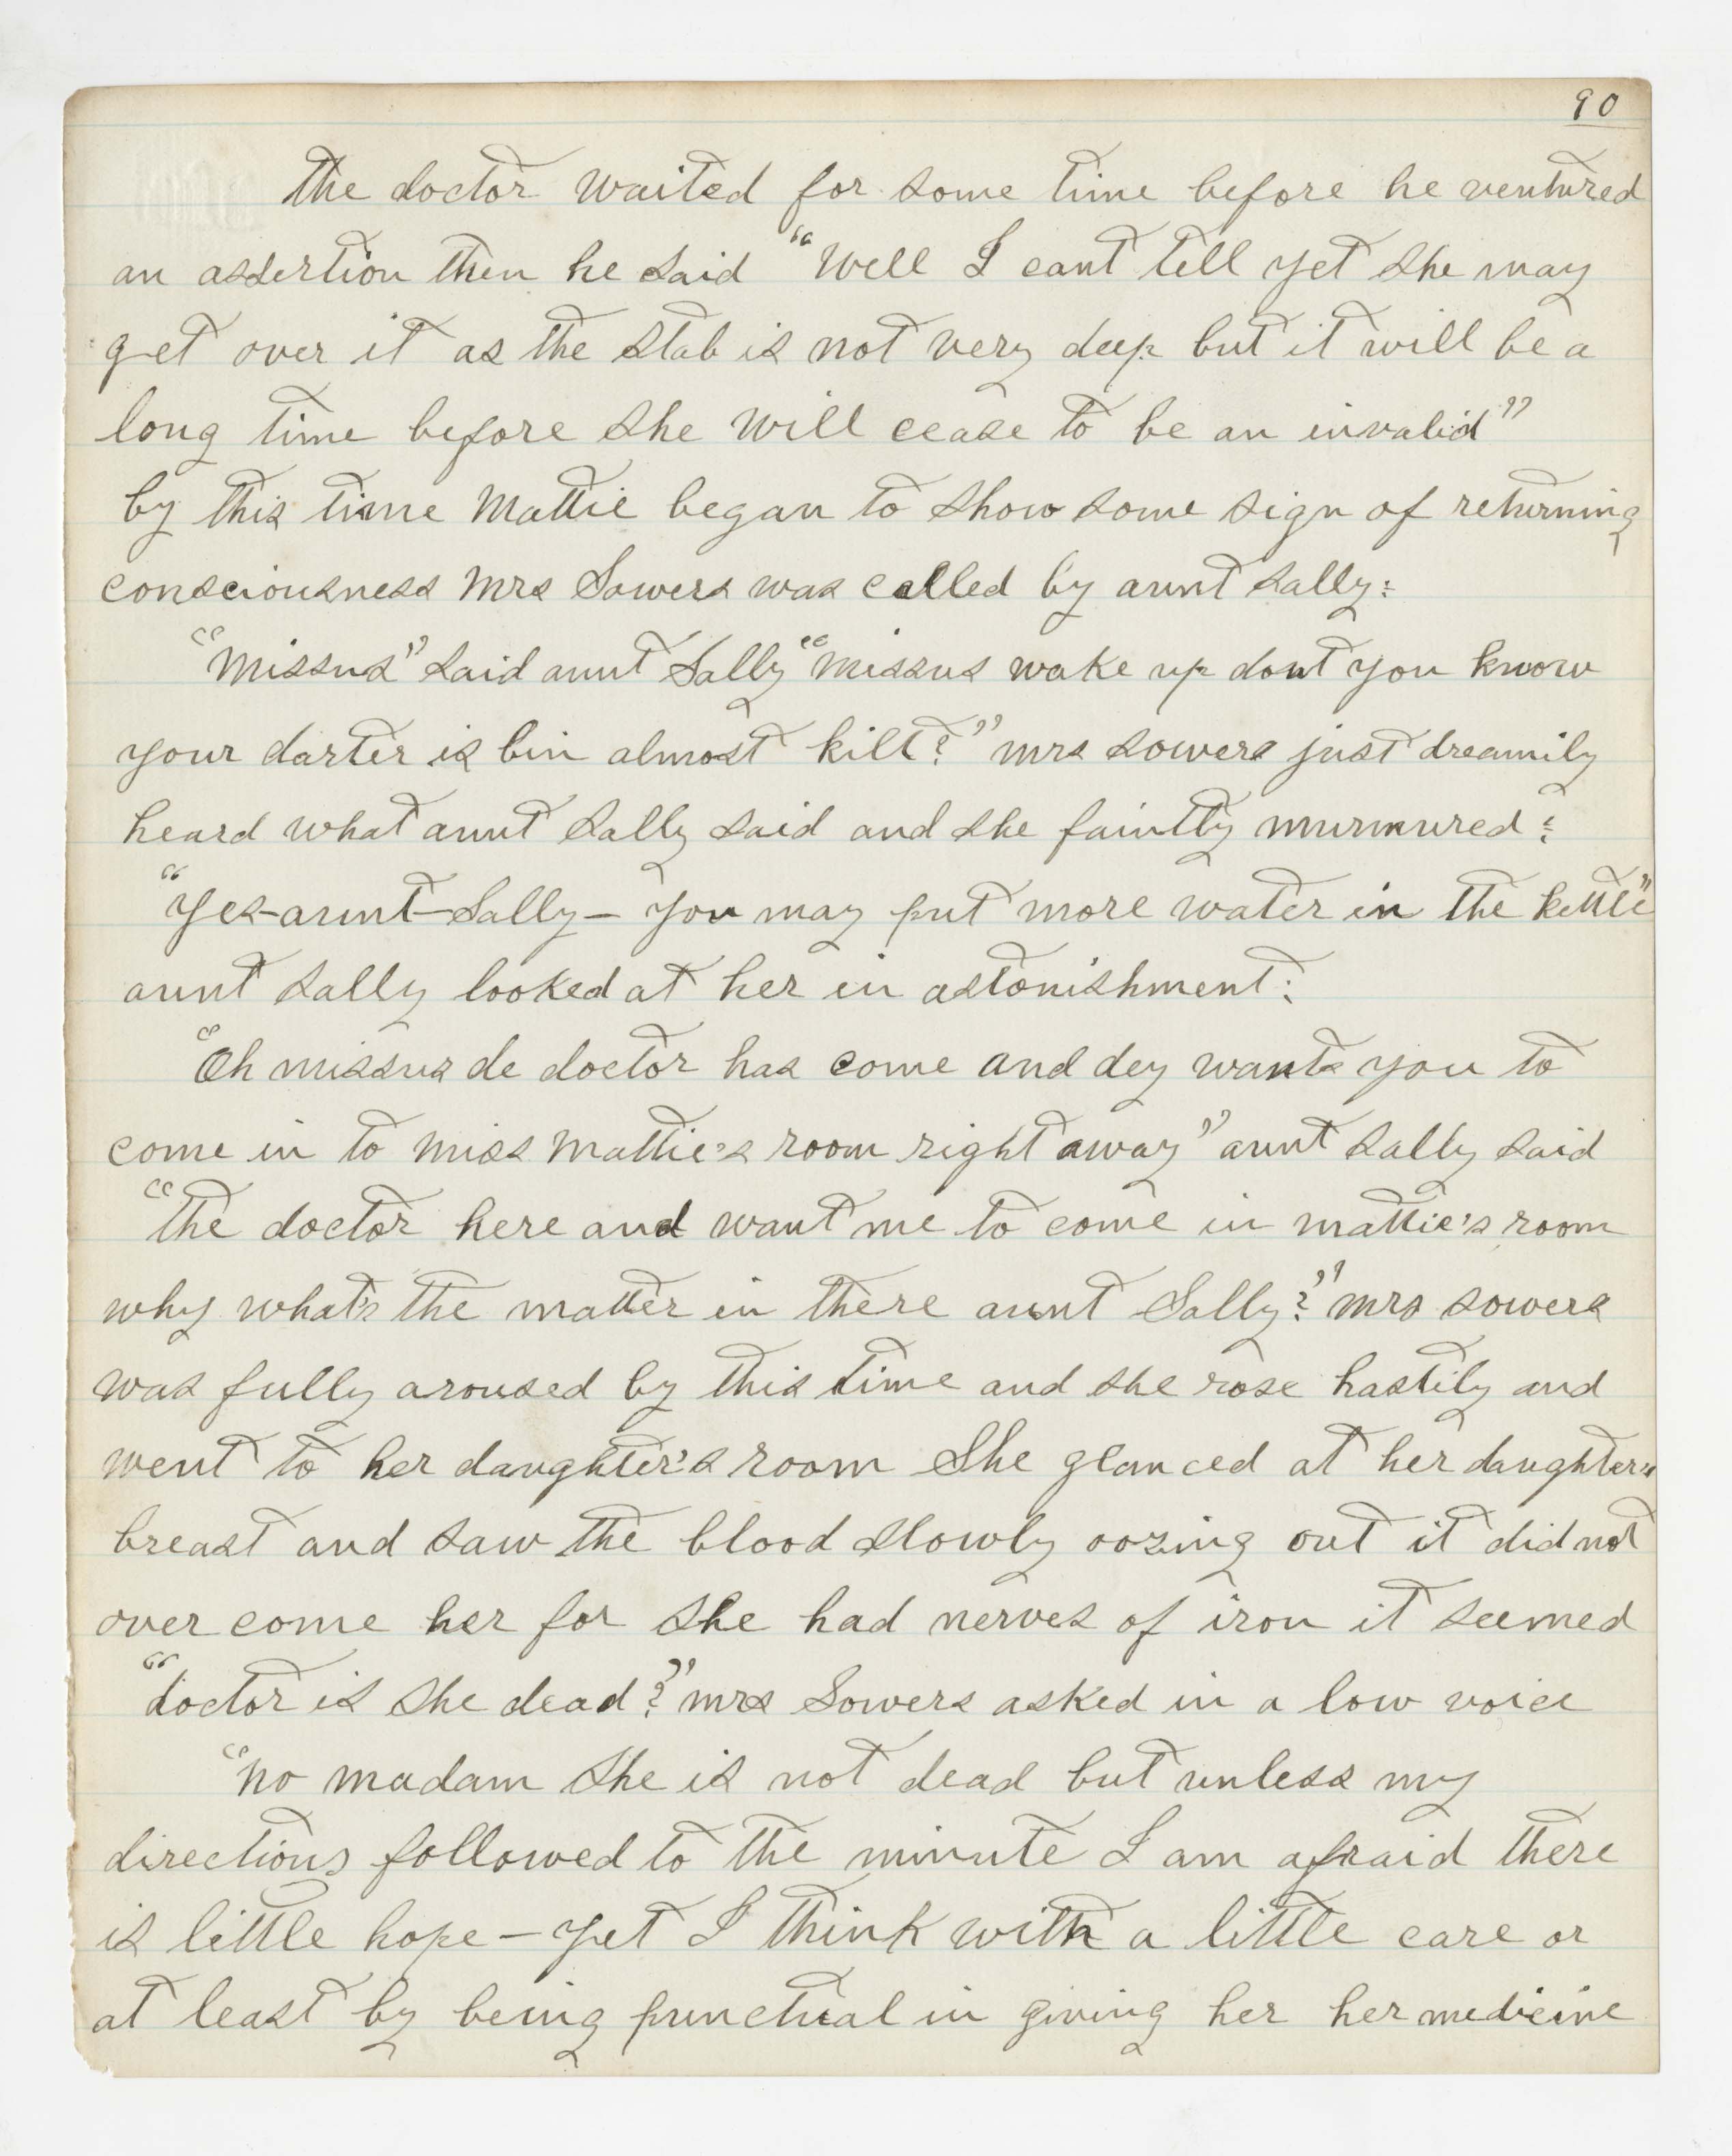 90
The doctor waited for some time before he ventured
an assertion then he said "Well I cant tell yet she may
get over it as the stab is not very deep but it will be a
long time before she will cease to be an invalid"
by this time Mattie began to show some sign of returning
consciousness Mrs Sowers was called by aunt Sally:
"Missus" said aunt Sally "Missus wake up dont you know
your darter is bin almost kilt?" mrs sowers just dreamily
heard what aunt Sally said and she faintly murmured:
"Yes-aunt-Sally- you may put more water in the kettle"
aunt Sally looked at her in astonishment:
"Oh missus de doctor has come and dey wants you to
come in to miss Mattie's room right away" aunt Sally said
"the doctor here and want me to come in mattie's room
why what's the matter in there aunt Sally?" mrs sowers
was fully aroused by this time and she rose hastily and
went to her daughter's room She glanced at her daughter's
breast and saw the blood slowly oozing out it did not
over come her for she had nerves of iron it seemed
"doctor is she dead?" mrs Sowers asked in a low voice
"no madam she is not dead but unless my
directions followed to the minute I am afraid there
is little hope - yet I think with a little care or
at least by being punctual in giving her her medicine